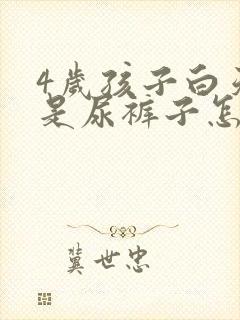 4歲孩子白
是尿裤子怎
冀世忠